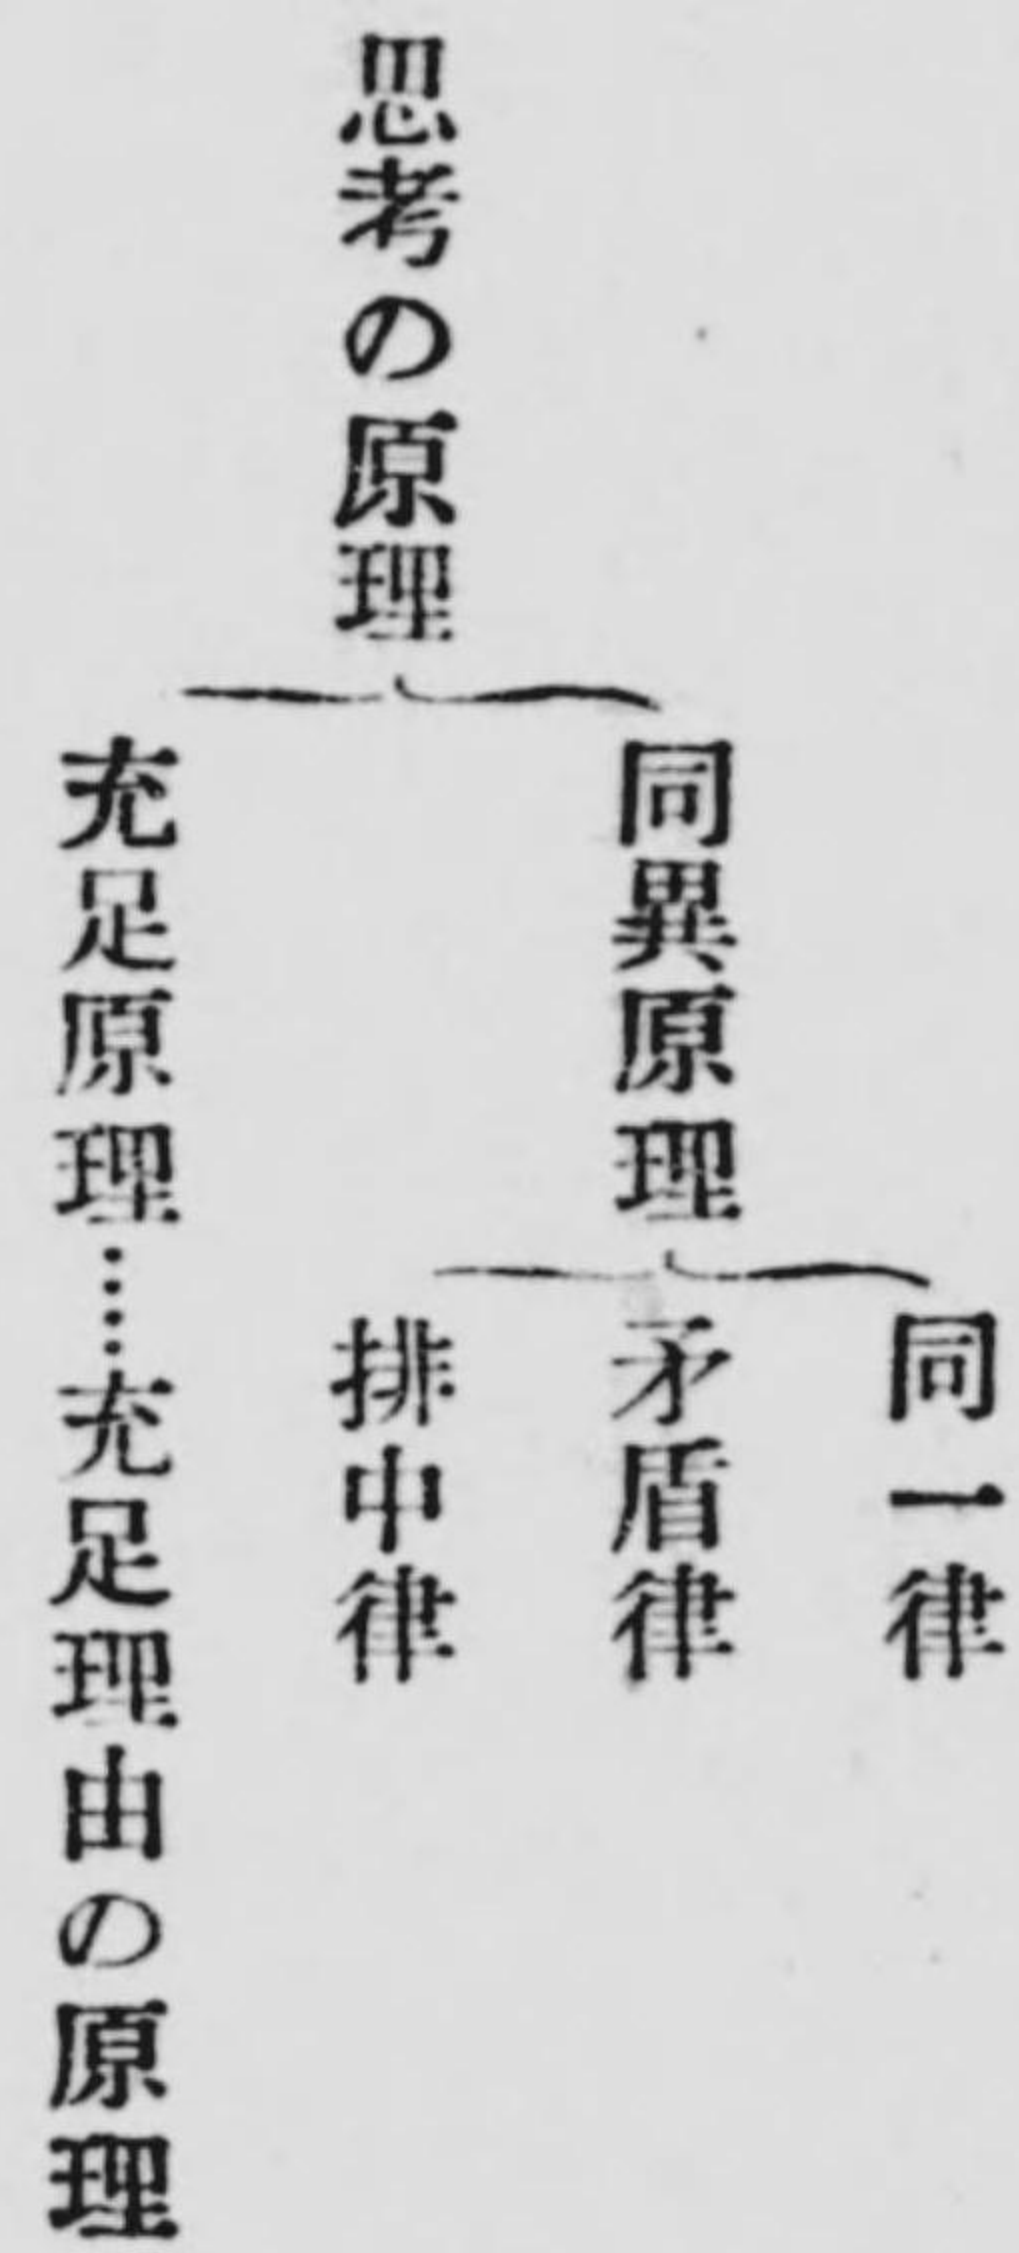 思考の原理
同異原理
同一律
矛盾律
排中律
充足原理……充足理由の原理